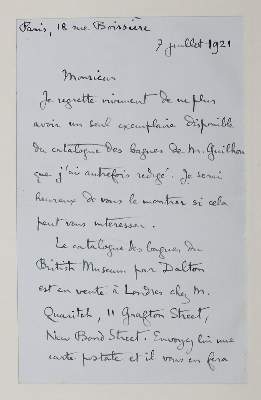 Paris, 18 rue Boissière
7 juillet 1921
Monsieur
Je regrette vivement de ne plus
avoir un seul exemplaire disponible
du catalogue des bagues de M. Guilhou
que j'ai autrefois rédigé. Je serai
heureux de vous le montrer si cela
peut vous intéresser.
Le catalogue des bagues du
British Museum par Dalton
est en vente à Londres chez M.
Quaritch, 11 Grafton Street,
New Bond Street. Envoyez lui une
carte postale et il vous en fera